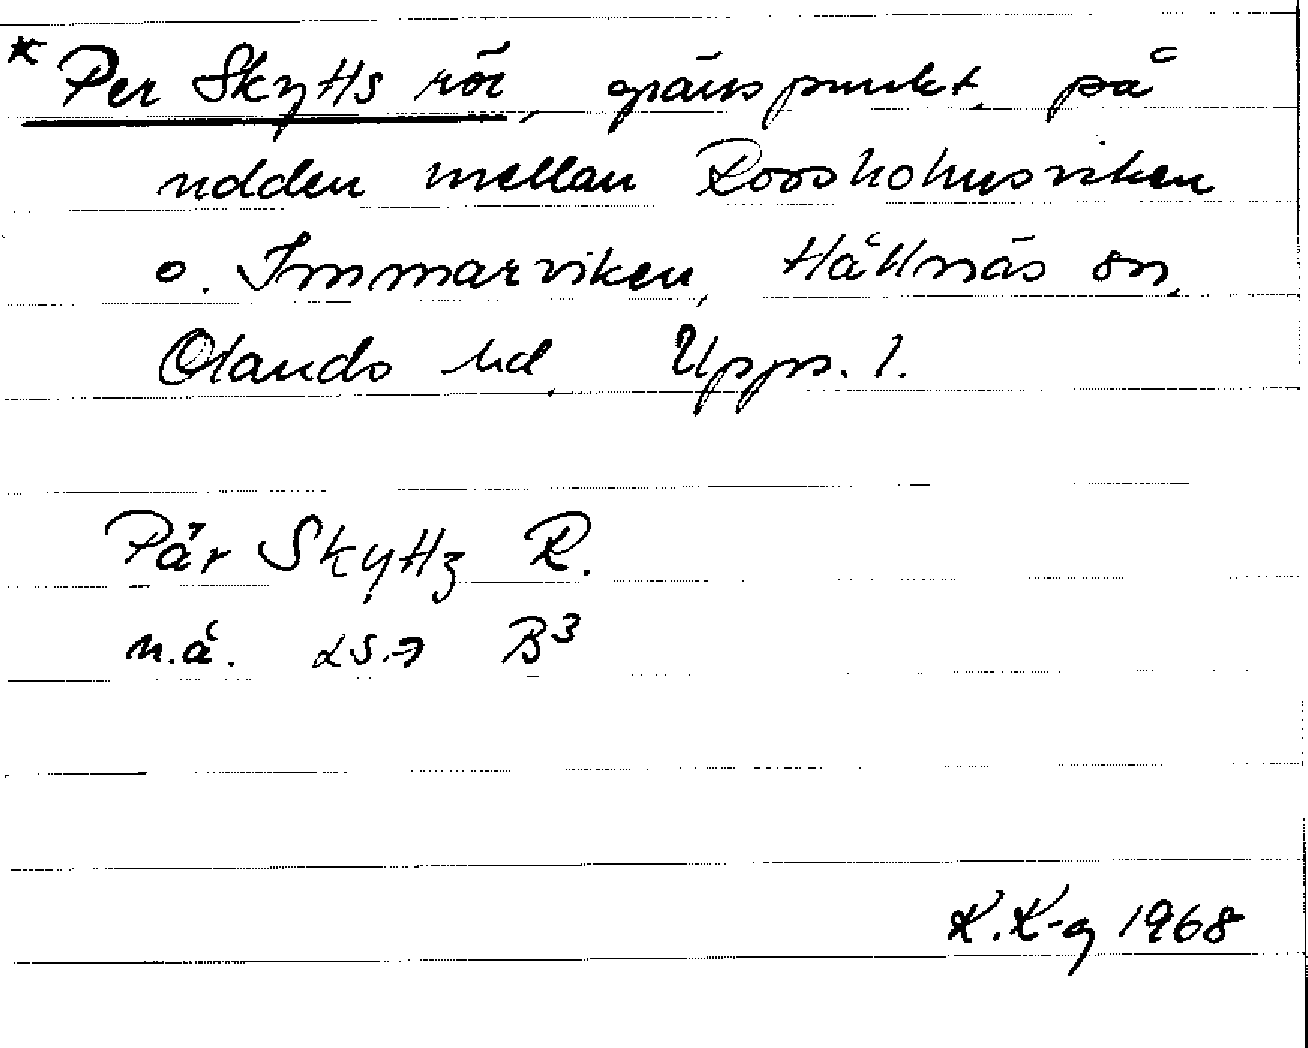 * Per Skytts rör, gränspunkt, på
udden mellan Rooskohusviken
o. Immarviken, Hållnäs sn,
Olands hd, Upps. l.
Pär Skyttz R.
n.å. LS→ B³
K.K-g 1968